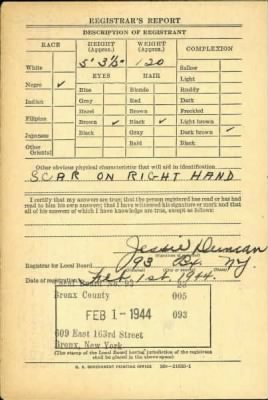 REGISTRAR'S REPORT
DESCRIPTION OF REGISTRANT
RACE
HEIGHT (Approx.)
WEIGHT (Approx.)
COMPLEXION
White
5' 3½"
120
Sallow
EYES
HAIR
Light
Negro ✓
Blue
Blonde
Ruddy
Indian
Gray
Red
Dark
Hazel
Brown
Freckled
Filipino
Brown ✓
Black ✓
Light brown
Japanese
Black
Gray
Dark brown ✓
Other Oriental
Bald
Black
Other obvious physical characteristic that will aid in identification
SCAR ON RIGHT HAND
I certify that my answers are true; that the person registered has read or has had
read to him his own answers; that I have witnessed his signature or mark and that
all of his answers of which I have knowledge are true, except as follows:
Jessie Duncan
Registrar for Local Board 93 Bx. NY.
Date of registration Feb 1st. 1944.
Bronx County 005
FEB 1 - 1944 093
609 East 163rd Street
Bronx, New York
(The stamp of the Local Board having jurisdiction of the registrant
shall be placed in the above space)
U. S. GOVERNMENT PRINTING OFFICE